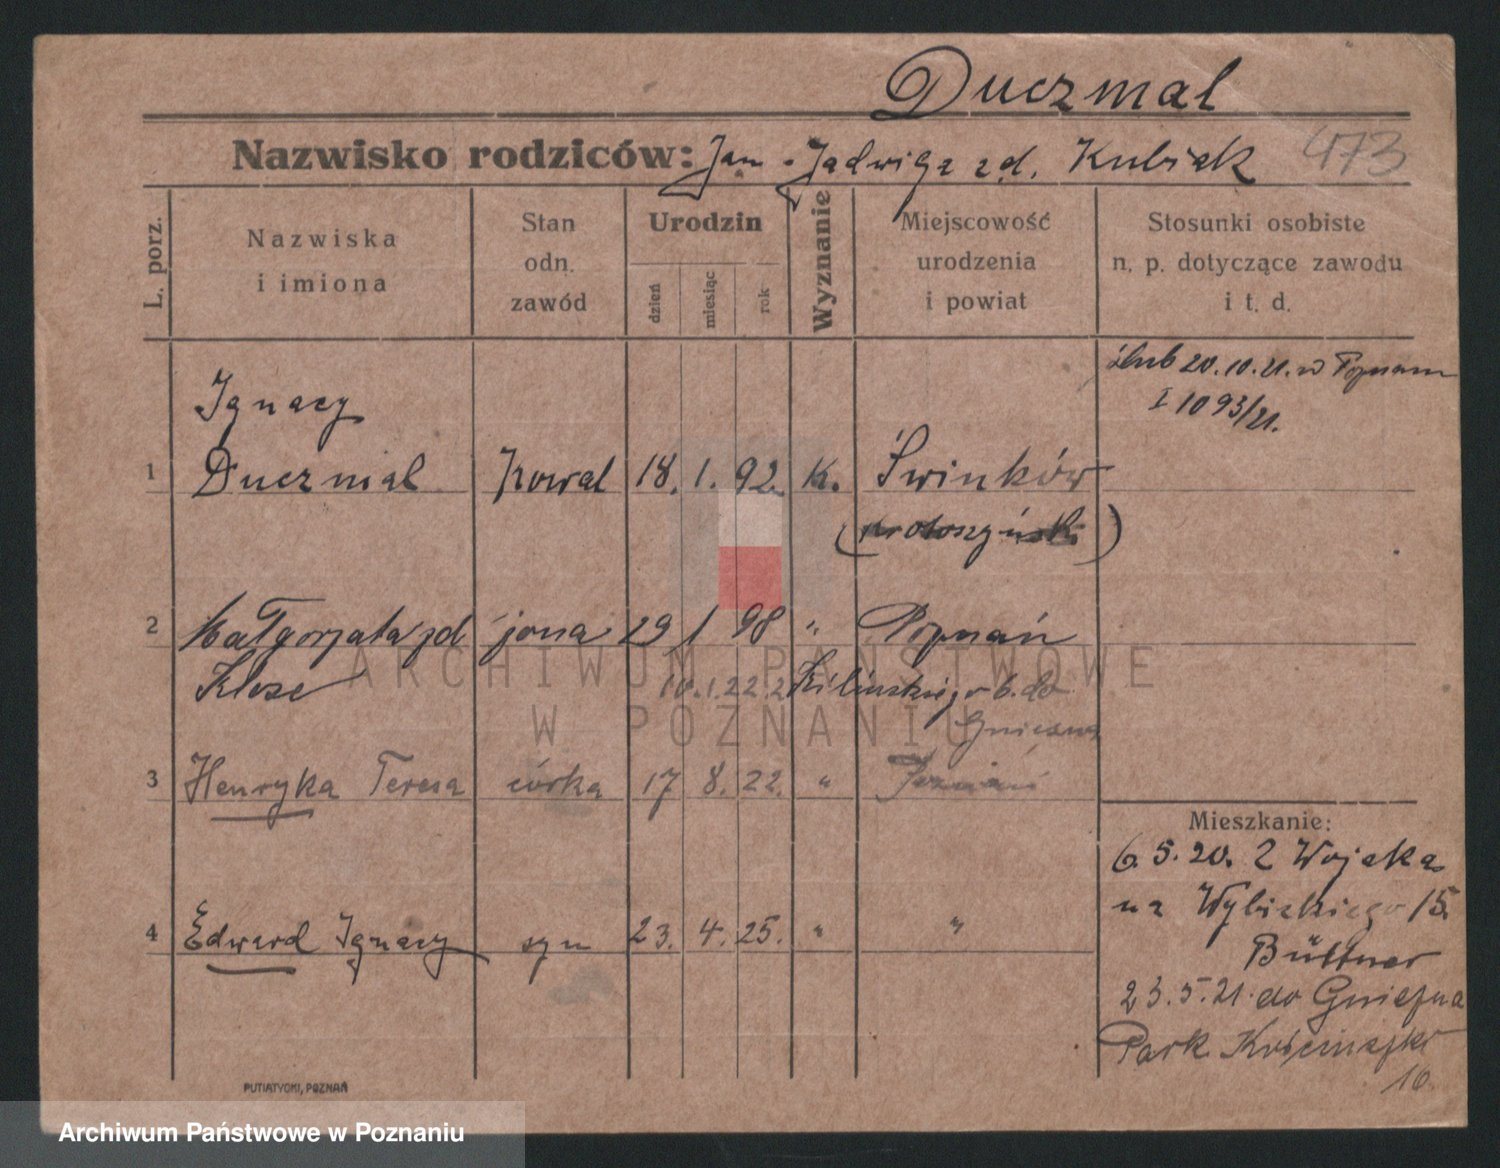 Duczmal
Nazwisko rodziców: Jan - Jadwiga zd. Kubiak 473
L. porz.
Nazwiska
i imiona
Stan
odn.
zawód
Urodzin
dzień
miesiąc
rok
Wyznanie
Miejscowość
urodzenia
i powiat
Stosunki osobiste
n. p. dotyczące zawodu
i t. d.
ślub 20.10.21. w Poznaniu
I 1093/21.
Ignacy
1 Duczmal Kowal 18. 1. 92. K. Świnków
(Krotoszyński)
2 Małgorzata zd żona 29 1 98 " Poznań
Klose 10.1.22 z Kilińskiego 6. do
Gniezna
3 Henryka Teresa córka 17 8. 22. " Poznań
4 Edward Ignacy syn 23. 4. 25. " "
Mieszkanie:
6. 5. 20. z Wojska
na Wybickiego 15.
Büttner
23.5.21. do Gniezna
Park Kościuszki
16
PUTIATYCKI, POZNAŃ
ARCHIWUM PAŃSTWOWE
W POZNANIU
Archiwum Państwowe w Poznaniu